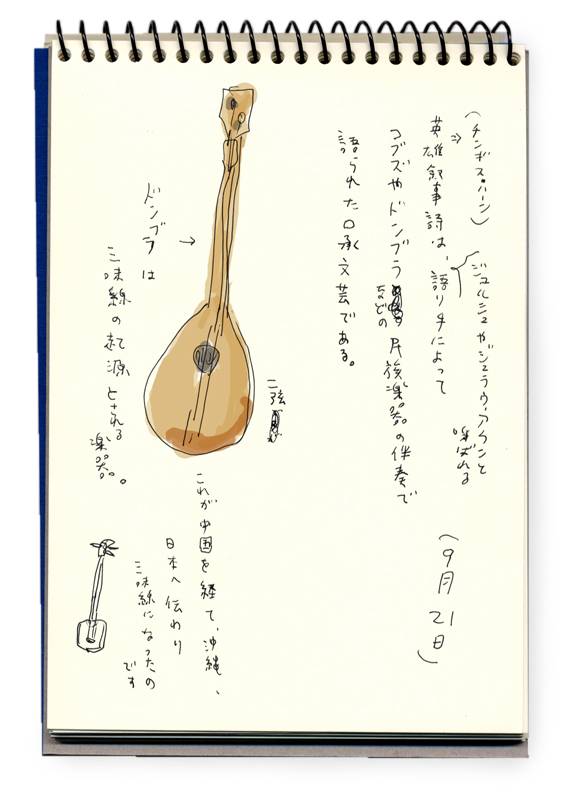 （チンギス・ハーン）
⇒
英雄叙事詩は、語り手によって
ジュルシュやジュラウ、アクンと
呼ばれる
コブズやドンブラ
などの
民族楽器の伴奏で
語られた口承文芸である。
（9月21日）
二弦
→
ドンブラは
三味線の起源とされる
楽器。
これが中国を経て、沖縄、
日本へ伝わり
三味線になったの
です